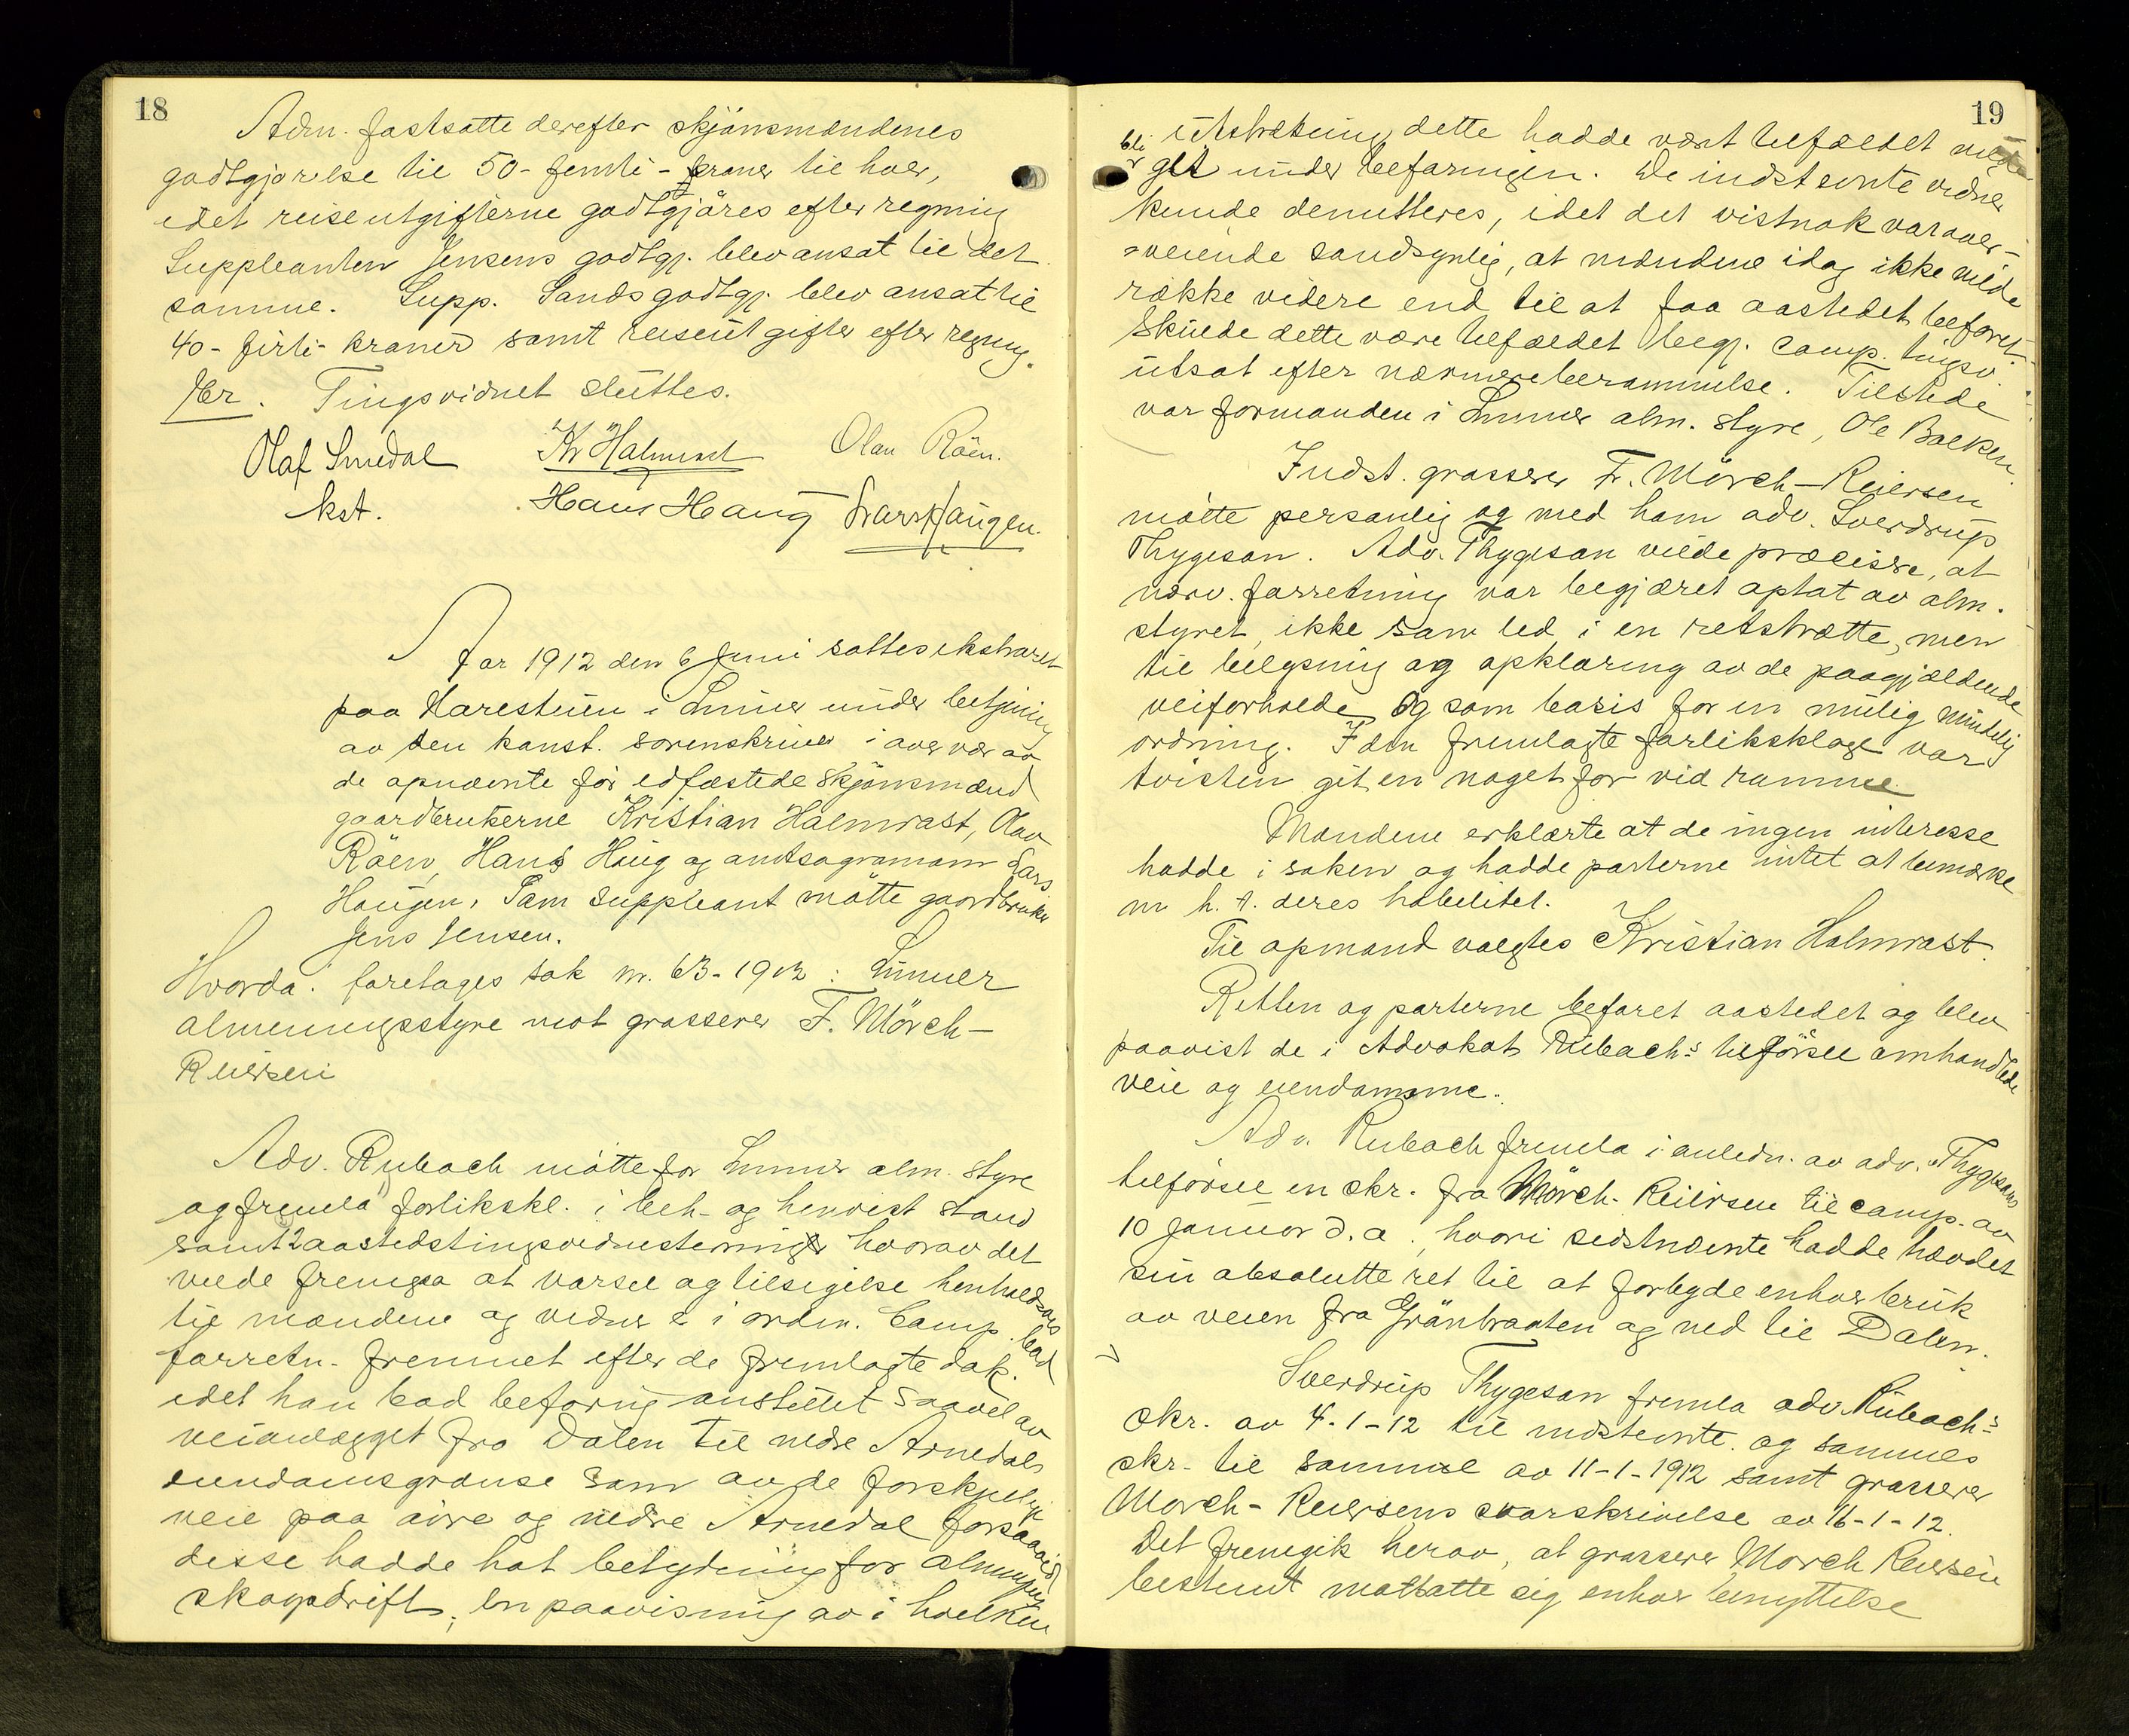 18
Adm. fastsatte derefter skjönsmændenes
godtgjörelse til 50 - femti - kroner til hver,
idet reiseutgifterne godtgjöres efter regning
Suppleanten Jensens godtgj. blev ansat til det
samme. Supp. Sands godtgj. blev ansat til
40 - firti - kroner samt reiseutgifter efter regning.
Tingsvidnet sluttes.
Olaf Smedal Kr Halmrast Olav Röen.
kst. Hans Haug Lars Haugen.
Aar 1912 den 6 Juni sattes ekstraret
paa Harestuen i Lunner under betjening
av den konst. sorenskriver i overvær av
de opnævnte før edfæstede skjönsmænd
gaardbrukerne Kristian Halmrast, Olav
Röen, Hans Haug og amtsagronom Lars
Haugen. Som suppleant møtte gaardbruker
Jens Jensen.
Hvorda: foretages sak nr. 63-1912: Lunner
almenningsstyre mot grosserer F. Mörch-
Reiersen
Adv. Rubach møtte for Lunner alm. styre
og fremla forlikskl. i beh- og henvist stand
samt 2 aastedstingsvidnestevninger hvorav det
vilde fremgaa at varsel og tilsigelse henholdsvis
til mændene og vidner e i orden. Comp. bad
forretn. fremmet efter de fremlagte dok.
idet han bad befaring anstillet saavel av
veianlægget fra Dalen til nedre Arnedals
eiendomsgrænse som av de forskjellige
veie paa övre og nedre Arnedal forsaavidt
disse hadde hat betydning for almenningens
skogsdrift. En paavisning av i hvilken
19
utstrækning dette hadde vært tilfældet
bli git under befaringen. De indstevnte vidner
kunde demitteres, idet det vistnok var over-
veiende sandsynlig, at mændene idag ikke vilde
række videre end til at faa aastedet befaret.
Skulde dette være tilfældet begj. comp. tingsv.
utsat efter nærmere berammelse. Tilstede
var formanden i Lunner alm. styre, Ole Balken.
Indst. grosserer F. Mörch-Reiersen
møtte personlig og med ham adv. Sverdrup
Thygeson. Adv. Thygeson vilde præcisere, at
nærv. forretning var begjæret optat av alm.
styret, ikke som led i en retstrætte, men
til belysning og opklaring av de paagjældende
veiforholde og som basis for en mulig mindelig
ordning. I den fremlagte forliksklage var
tvisten git en noget for vid ramme
Mændene erklærte at de ingen interesse
hadde i saken og hadde parterne intet at bemærke
m. h. t. deres habilitet.
Til opmand valgtes Kristian Halmrast.
Retten og parterne befaret aastedet og blev
paavist de i Advokat Rubach's tilförsel omhandlede
veie og eiendomme.
Adv. Rubach fremla i anledn. av adv. Thygesons
tilförsel en skr. fra Mörch-Reiersen til comp. av
10 januar d.a., hvori sidstnævnte hadde hævdet
sin absolutte ret til at forbyde enhver bruk
av veien fra Grönbraaten og ned til Dalen.
Sverdrup Thygeson fremla adv. Rubach's
skr. av 4-1-12 til indstevnte og sammes
skr. til samme av 11-1-1912 samt grosserer
Mörch-Reiersens svarskrivelse av 16-1-12.
Det fremgik herav, at grosserer Mörch Reiersen
bestemt motsatte sig enhver benyttelse